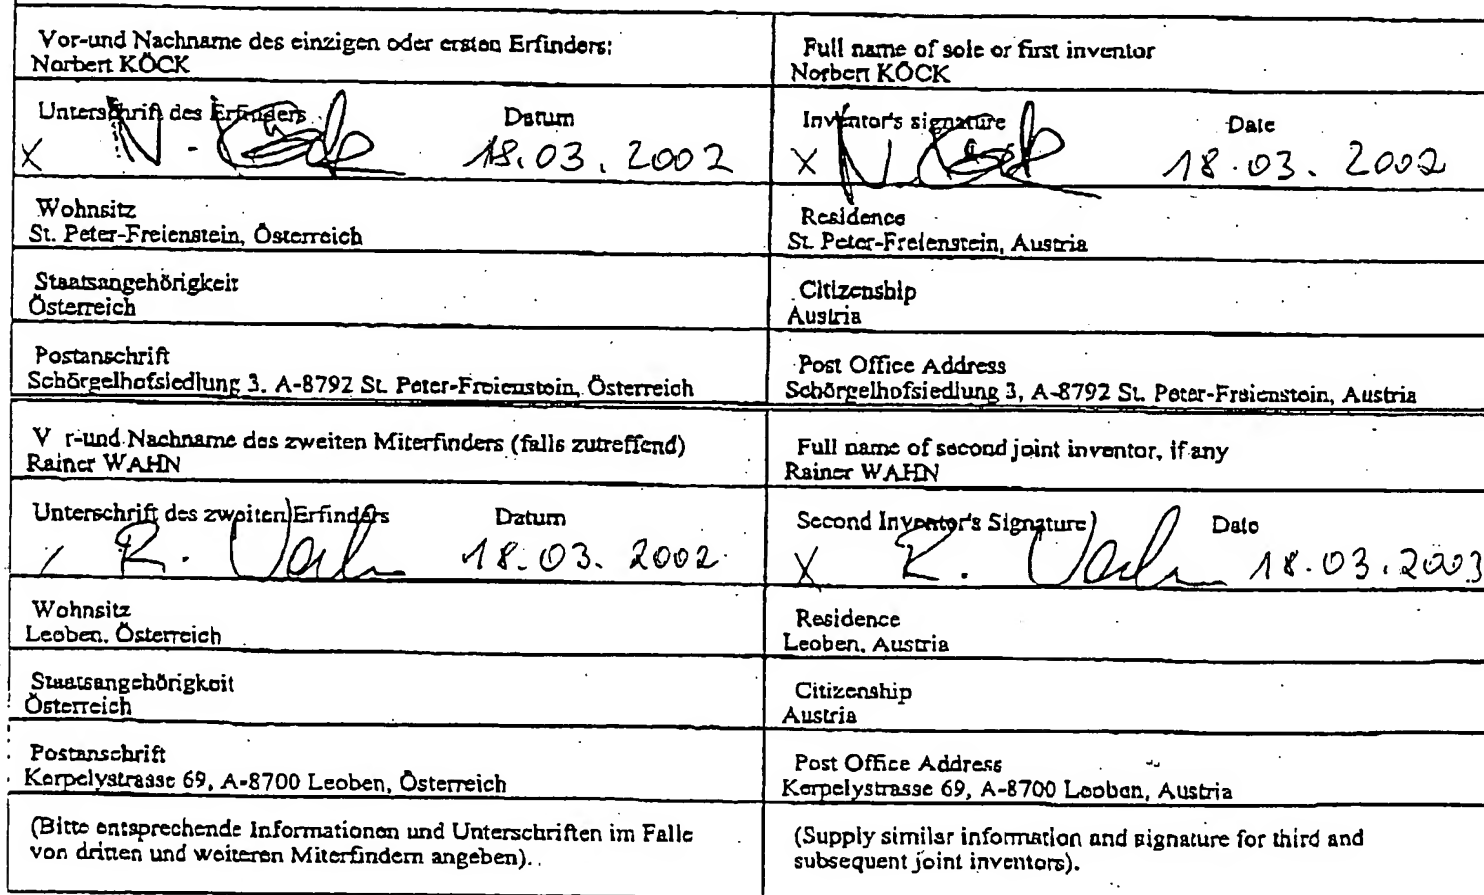 Vor-und Nachname des einzigen oder ersten Erfinders:
Norbert KÖCK
Unterschrift des Erfinders Datum
X N. Köck 18.03.2002
Wohnsitz
St. Peter-Freienstein, Österreich
Staatsangehörigkeit
Österreich
Postanschrift
Schörgelhofsiedlung 3, A-8792 St. Peter-Freienstein, Österreich
V r-und Nachname des zweiten Miterfinders (falls zutreffend)
Rainer WAHN
Unterschrift des zweiten Erfinders Datum
R. 18.03.2002
Wohnsitz
Leoben, Österreich
Staatsangehörigkeit
Österreich
Postanschrift
Kerpelystrasse 69, A-8700 Leoben, Österreich
(Bitte entsprechende Informationen und Unterschriften im Falle
von dritten und weiteren Miterfindern angeben)..
Full name of sole or first inventor
Norbert KÖCK
Inventor's signature Date
X N. Köck 18.03.2002
Residence
St. Peter-Freienstein, Austria
Citizenship
Austria
Post Office Address
Schörgelhofsiedlung 3, A-8792 St. Peter-Freienstein, Austria
Full name of second joint inventor, if any
Rainer WAHN
Second Inventor's Signature Date
X R. 18.03.2003
Residence
Leoben, Austria
Citizenship
Austria
Post Office Address
Kerpelystrasse 69, A-8700 Leoben, Austria
(Supply similar information and signature for third and
subsequent joint inventors).